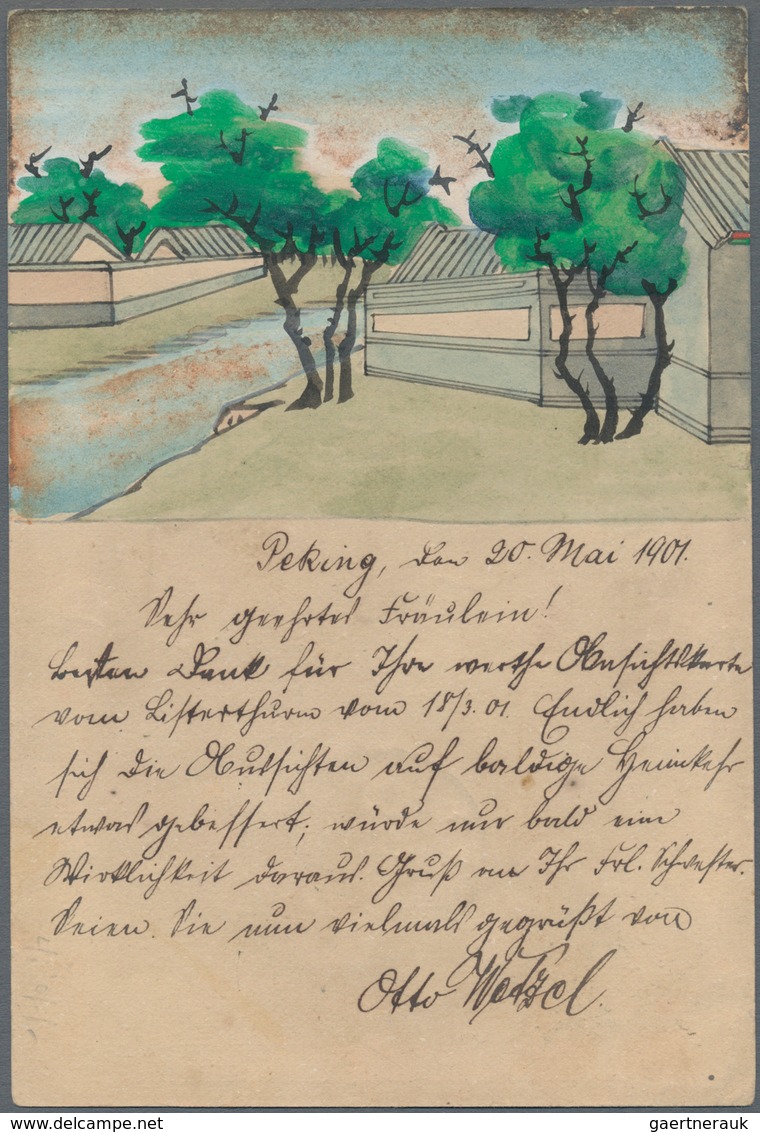 Peking, den 20. Mai 1901.
Sehr geehrtes Fräulein!
Besten Dank für Ihre werthe Ansichtskarte
vom Listerthurm vom 18/3. 01. Endlich haben
sich die Aussichten auf baldige Heimkehr
etwas gebessert; würde nur bald eine
Wirklichkeit daraus. Gruß an Ihr Frl. Schwester.
Seien Sie nun vielmals gegrüßt von
Otto Wetzel.
www.delcampe.net
gaertnerauk